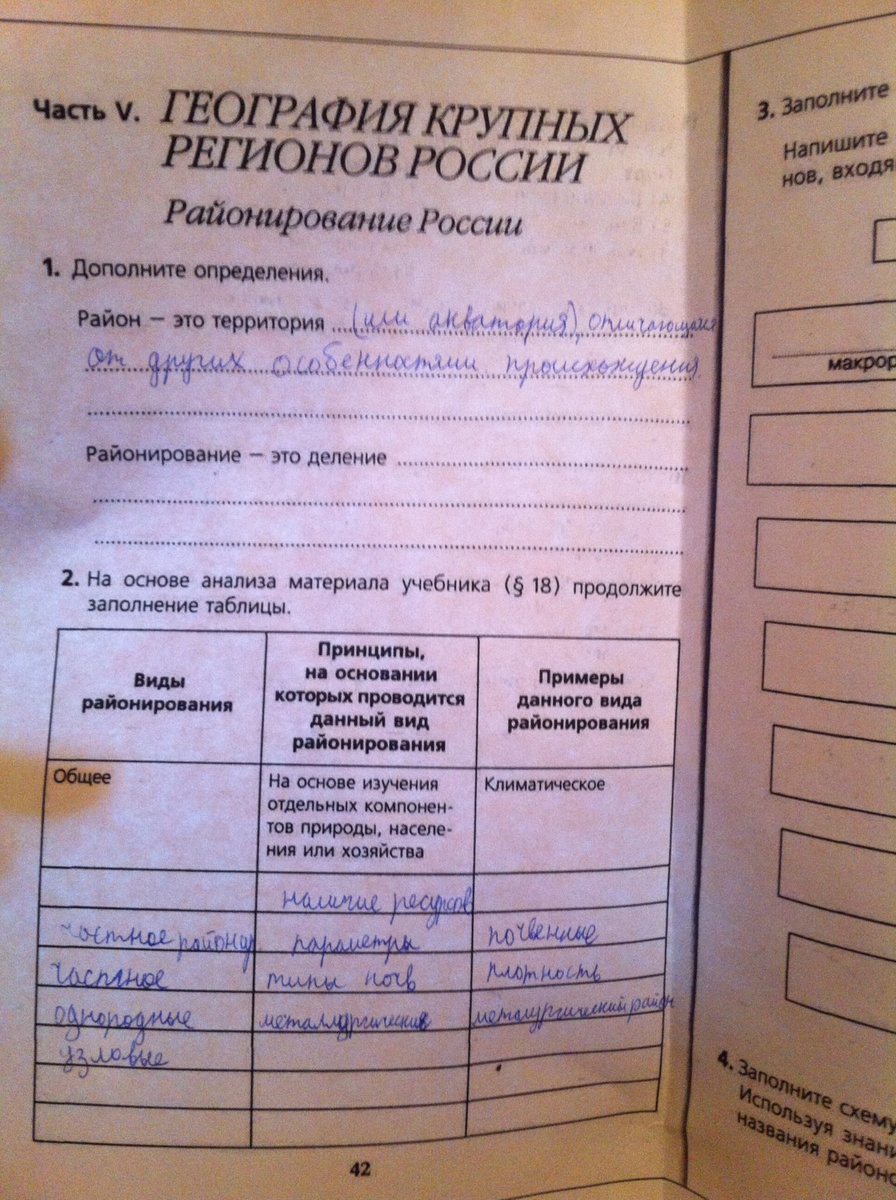 Часть V. ГЕОГРАФИЯ КРУПНЫХ
РЕГИОНОВ РОССИИ
Районирование России
1. Дополните определения.
Район – это территория (или акватория), отличающаяся
от других особенностями происхождения
Районирование – это деление
2. На основе анализа материала учебника (§ 18) продолжите
заполнение таблицы.
Виды
районирования
Принципы,
на основании
которых проводится
данный вид
районирования
Примеры
данного вида
районирования
Общее
На основе изучения
отдельных компонен-
тов природы, населе-
ния или хозяйства
Климатическое
наличие ресурсов
частное районир параметры почвенные
частное типы почв плотность
однородные металлургические металургический район
узловые
42
3. Заполните
Напишите
нов, входя
макрор
4. Заполните схему
Используя знани
названия районо